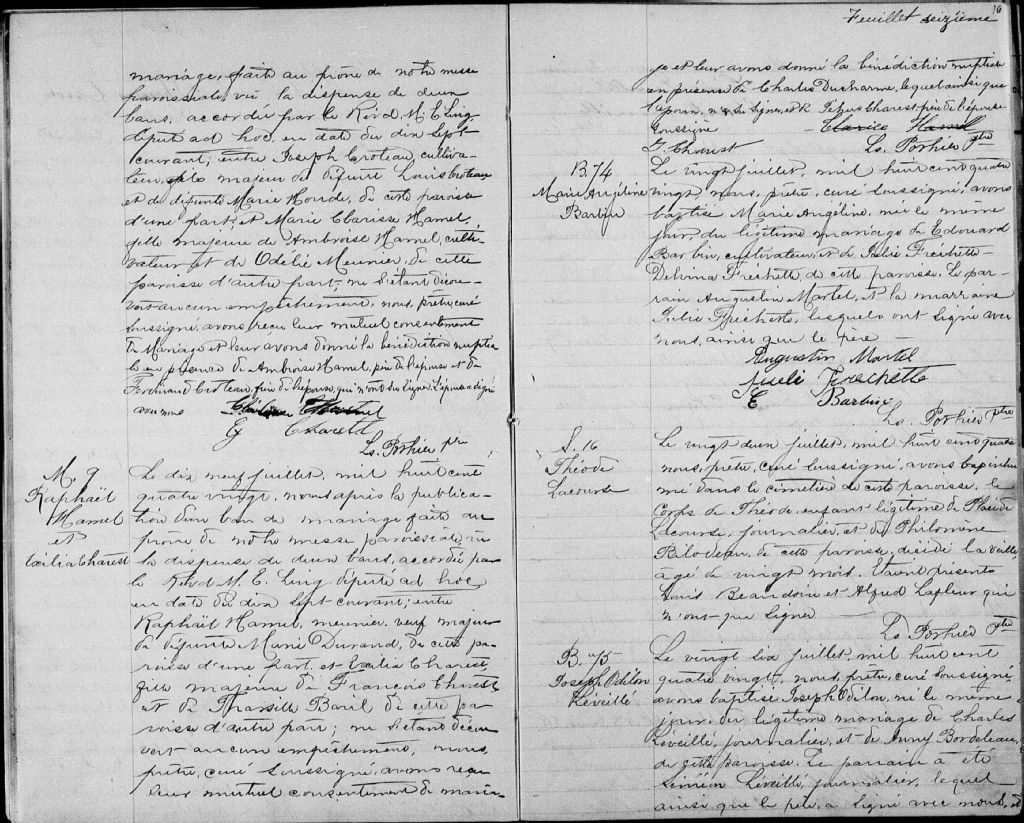 mariage, faite au prône de notre messe
paroissiale, vu la dispense de deux
bans, accordée par le Révd. M. E. Ling
député ad hoc, en date du dix sept
courant; entre Joseph Croteau, cultiva-
teur, fils majeur de défunt Louis Croteau
et de défunte Marie Houde, de cette paroisse
d'une part, et Marie Clarisse Hamel,
fille majeure de Ambroise Hamel, culti-
vateur et de Odélie Meunier, de cette
paroisse d'autre part; ne s'étant décou-
vert aucun empêchement, nous, prêtre, curé
sussigné, avons reçu leur mutuel consentement
de Mariage et leur avons donné la bénédiction nuptia-
le en présence de Ambroise Hamel, père de l'épouse et de
Ferdinand Croteau, frère de l'époux, qui n'ont su signer. L'épouse a signé
avec nous
G Charest
Ls. Pothier ptre
M. 9
Raphaël
Hamel
et
Cælia Charest
Le dix neuf juillet, mil huit cent
quatre vingt, nous après la publica-
tion d'un ban de mariage faite au
prône de notre messe paroissiale, vu
la dispense de deux bans, accordée par
le Révd M. E. Ling député ad hoc,
en date du dix sept courant; entre
Raphaël Hamel, meunier, veuf majeur
de défunte Marie Durand, de cette pa-
roisse d'une part, et Cælia Charest,
fille majeure de François Charest
et de Tharsile Baril de cette pa-
roisse d'autre part; ne s'étant décou-
vert aucun empêchement, nous,
prêtre, curé soussigné, avons reçu
leur mutuel consentement de maria-
16
Feuillet seizième
ge et leur avons donné la bénédiction nuptiale
en présence de Charles Ducharme, lequel ainsi que
l'époux, n'a su signer, et de François Charest père de l'épouse
soussigné Clarice Hamel
G. Charest Ls. Pothier Ptre
B. 74
Marie Angéline
Barbin
Le vingt juillet, mil huit cent quatre
vingt, nous, prêtre, curé soussigné, avons
baptisé Marie Angéline, née le même
jour, du légitime mariage de Edouard
Barbin, cultivateur, et de Julie Fréchette
Delvina Fréchette de cette paroisse. Le par-
rain Augustin Martel, et la marraine
Julie Fréchette, lesquels ont signé avec
nous, ainsi que le père
Augustin Martel
Jueli Frechette
E Barbin
Ls. Pothier Ptre
S. 16
Théode
Lacourse
Le vingt deux juillet, mil huit cent quatre
nous, prêtre, curé soussigné, avons
inhumé dans le cimetière de cette paroisse, le
Corps de Théode, enfant légitime de Placide
Lacourse, journalier, et de Philomène
Bilodeau, de cette paroisse, décédé la veille,
âgé de vingt mois. Etaient présents
Louis Beaudoin et Alfred Lafleur qui
n'ont pu signer
Ls. Pothier Ptre
B. 75
Joseph Odilon
Léveillé
Le vingt six juillet, mil huit cent
quatre vingt, nous, prêtre, curé soussigné,
avons baptisé Joseph Odilon, né le même
jour, du légitime mariage de Charles
Léveillé, journalier, et de Anny Bordeleau,
de cette paroisse. Le parrain a été
Siméon Léveillé, journalier, lequel
ainsi que le père, a signé avec nous, et